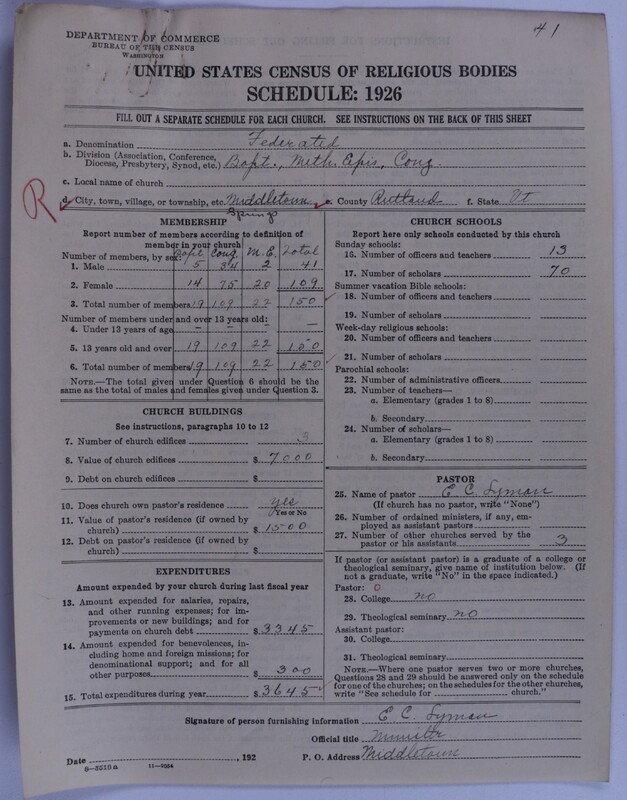 41
DEPARTMENT OF COMMERCE
BUREAU OF THE CENSUS
WASHINGTON
UNITED STATES CENSUS OF RELIGIOUS BODIES
SCHEDULE: 1926
FILL OUT A SEPARATE SCHEDULE FOR EACH CHURCH. SEE INSTRUCTIONS ON THE BACK OF THIS SHEET
a. Denomination Federated
b. Division (Association, Conference, Diocese, Presbytery, Synod, etc.) Bapt., Meth. Epis, Cong.
c. Local name of church
R
d. City, town, village, or township, etc. Middletown Springs e. County Rutland f. State Vt
MEMBERSHIP
Report number of members according to definition of member in your church
Number of members, by sex: Bapt Cong M.E. Total
1. Male 5 34 2 41
2. Female 14 75 20 109
3. Total number of members 19 109 22 150
Number of members under and over 13 years old:
4. Under 13 years of age – – – –
5. 13 years old and over 19 109 22 150
6. Total number of members 19 109 22 150
NOTE.—The total given under Question 6 should be the same as the total of males and females given under Question 3.
CHURCH BUILDINGS
See instructions, paragraphs 10 to 12
7. Number of church edifices 3
8. Value of church edifices $ 7000
9. Debt on church edifices $
10. Does church own pastor's residence? yes
Yes or No
11. Value of pastor's residence (if owned by church) $ 1500
12. Debt on pastor's residence (if owned by church) $
EXPENDITURES
Amount expended by your church during last fiscal year
13. Amount expended for salaries, repairs, and other running expenses; for improvements or new buildings; and for payments on church debt $ 3345
14. Amount expended for benevolences, including home and foreign missions; for denominational support; and for all other purposes $ 300
15. Total expenditures during year $ 3645
CHURCH SCHOOLS
Report here only schools conducted by this church
Sunday schools:
16. Number of officers and teachers 13
17. Number of scholars 70
Summer vacation Bible schools:
18. Number of officers and teachers
19. Number of scholars
Week-day religious schools:
20. Number of officers and teachers
21. Number of scholars
Parochial schools:
22. Number of administrative officers
23. Number of teachers—
a. Elementary (grades 1 to 8)
b. Secondary
24. Number of scholars—
a. Elementary (grades 1 to 8)
b. Secondary
PASTOR
25. Name of pastor E. C. Lyman
(If church has no pastor, write "None")
26. Number of ordained ministers, if any, employed as assistant pastors
27. Number of other churches served by the pastor or his assistants 3
If pastor (or assistant pastor) is a graduate of a college or theological seminary, give name of institution below. (If not a graduate, write "No" in the space indicated.)
Pastor: 0
28. College no
29. Theological seminary no
Assistant pastor:
30. College
31. Theological seminary
NOTE.—Where one pastor serves two or more churches, Questions 28 and 29 should be answered only on the schedule for one of the churches; on the schedules for the other churches, write "See schedule for ______ church."
Signature of person furnishing information E. C. Lyman
Official title Minister
Date ______, 192 P. O. Address Middletown
8—5310a 11—9224